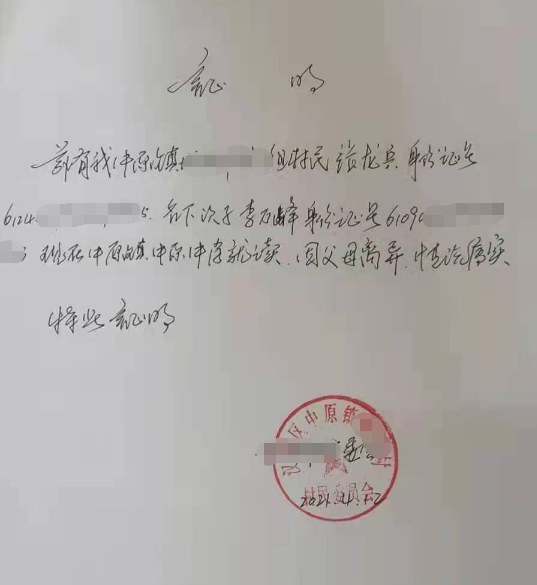 证 明
兹有我中原镇 组村民张龙兵 身份证号
6124 5. 名下次子李万峰 身份证号6109
现在中原镇中原中学就读、因父母离异、情况属实
特此证明
区中原镇 村
村民委员会